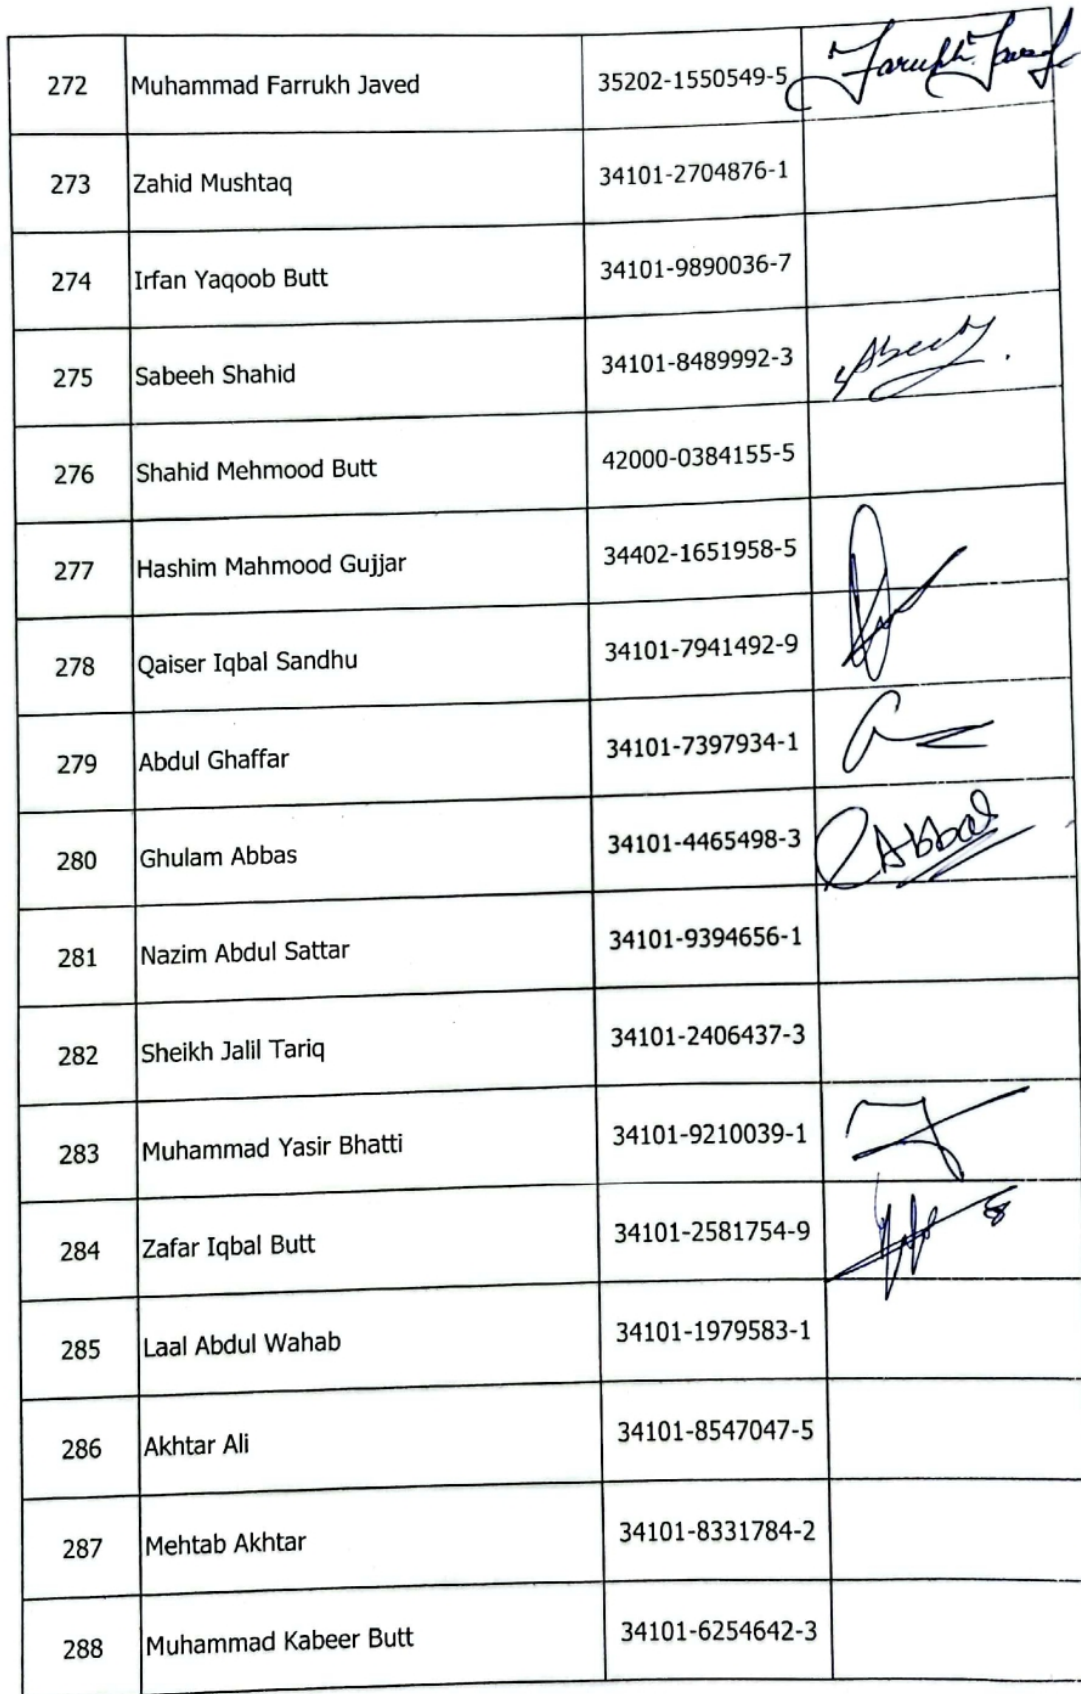 272 Muhammad Farrukh Javed 35202-1550549-5 Farukh Javed
273 Zahid Mushtaq 34101-2704876-1
274 Irfan Yaqoob Butt 34101-9890036-7
275 Sabeeh Shahid 34101-8489992-3
276 Shahid Mehmood Butt 42000-0384155-5
277 Hashim Mahmood Gujjar 34402-1651958-5
278 Qaiser Iqbal Sandhu 34101-7941492-9
279 Abdul Ghaffar 34101-7397934-1
280 Ghulam Abbas 34101-4465498-3 Abbas
281 Nazim Abdul Sattar 34101-9394656-1
282 Sheikh Jalil Tariq 34101-2406437-3
283 Muhammad Yasir Bhatti 34101-9210039-1
284 Zafar Iqbal Butt 34101-2581754-9
285 Laal Abdul Wahab 34101-1979583-1
286 Akhtar Ali 34101-8547047-5
287 Mehtab Akhtar 34101-8331784-2
288 Muhammad Kabeer Butt 34101-6254642-3